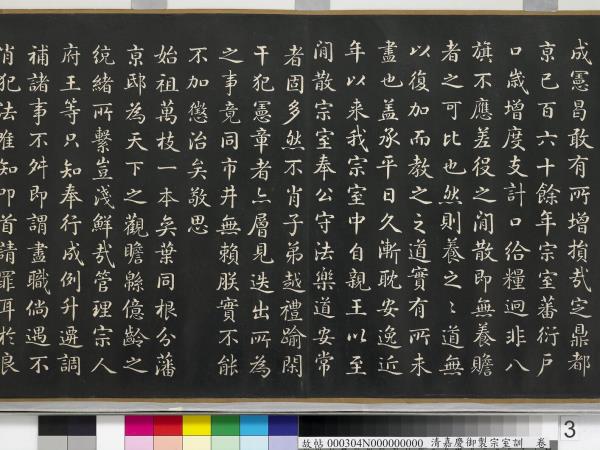 成憲昌敢有所增損哉定鼎都
京已百六十餘年宗室蕃衍戶
口歲增度支計口給糧迥非八
旗不應差役之閒散即無養贍
者之可比也然則養之之道無
以復加而教之之道實有所未
盡也蓋承平日久漸耽安逸近
年以来我宗室中自親王以至
閒散宗室奉公守法樂道安常
者固多然不肖子弟越禮踰閑
干犯憲章者亦層見迭出所為
之事竟同市井無賴朕實不能
不加懲治矣敬思
始祖萬枝一本矣葉同根分藩
京邸為天下之觀瞻緜億齡之
統緒所繫豈淺鮮哉管理宗人
府王等只知奉行成例升遷調
補諸事不舛即謂盡職倘遇不
肖犯法惟知叩首請罪耳於良
3
故帖 000304N000000000 清嘉慶御製宗室訓 卷